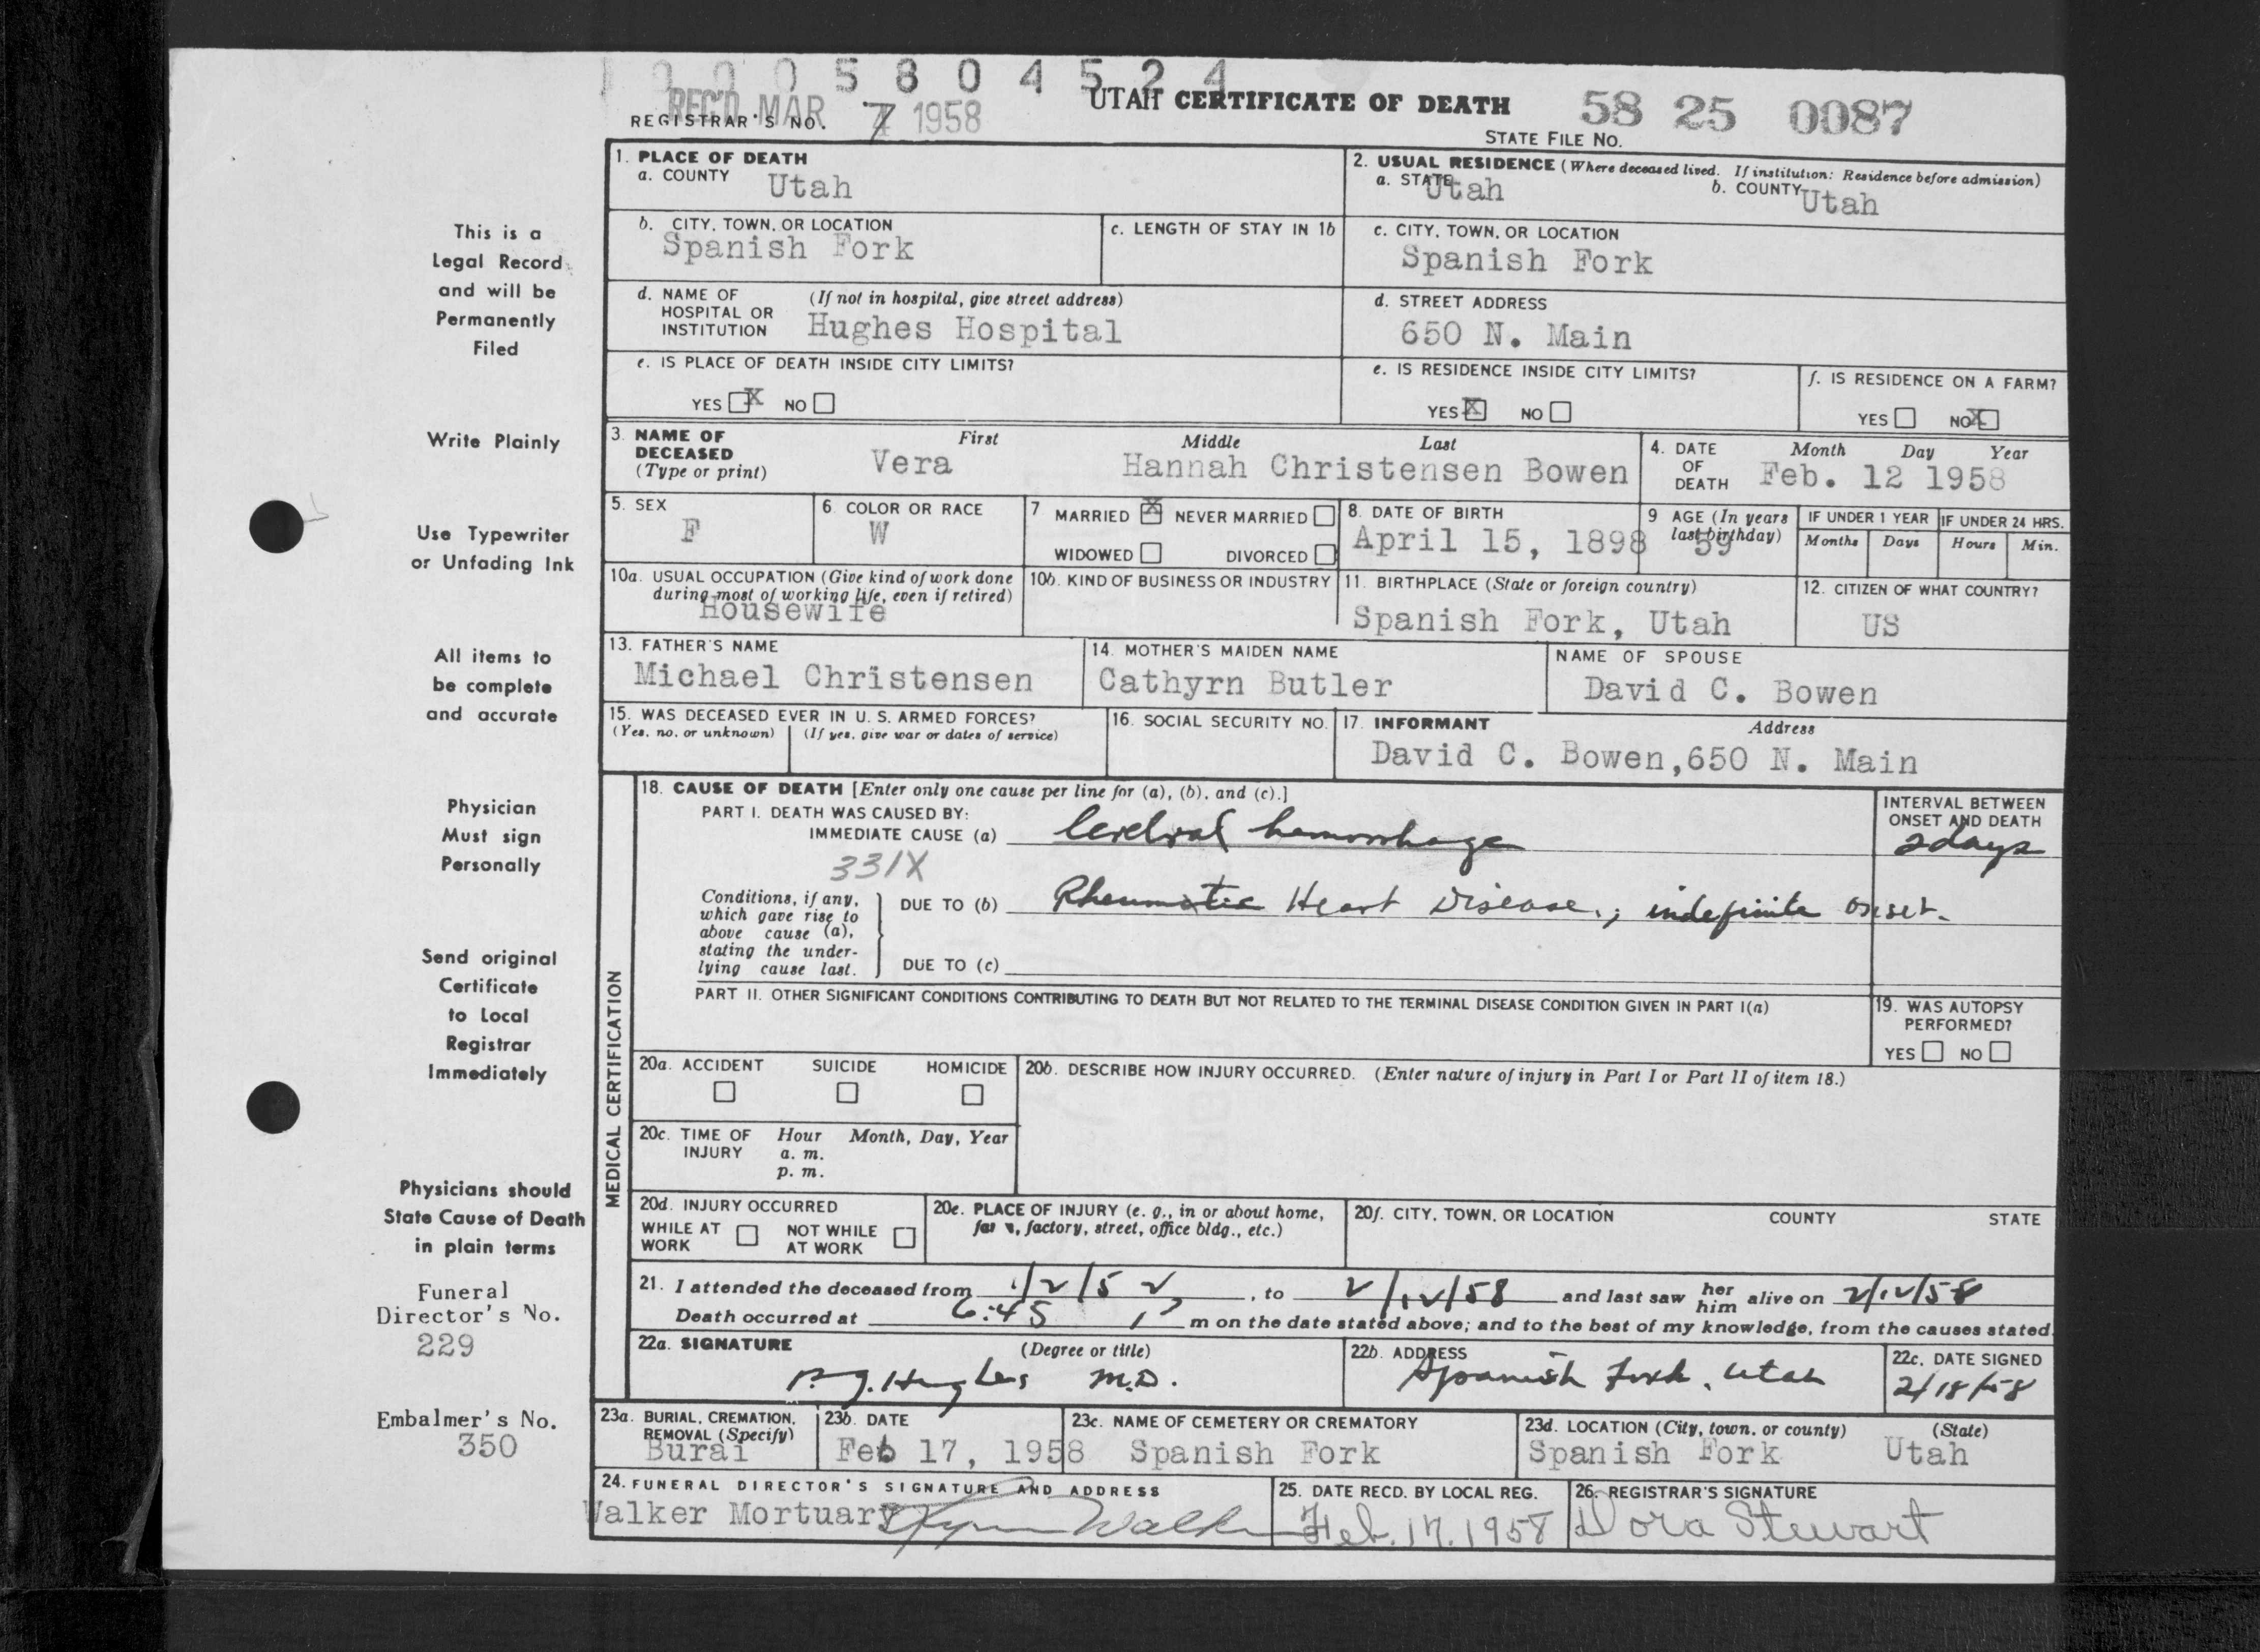 0 0 0 5 8 0 4 5 2 4
REC'D MAR 7 1958
REGISTRAR'S NO.
UTAH CERTIFICATE OF DEATH
58 25 0087
STATE FILE NO.
This is a
Legal Record
and will be
Permanently
Filed
Write Plainly
Use Typewriter
or Unfading Ink
All items to
be complete
and accurate
Physician
Must sign
Personally
Send original
Certificate
to Local
Registrar
Immediately
Physicians should
State Cause of Death
in plain terms
Funeral
Director's No.
229
Embalmer's No.
350
1. PLACE OF DEATH
a. COUNTY Utah
2. USUAL RESIDENCE (Where deceased lived. If institution: Residence before admission)
a. STATE Utah b. COUNTY Utah
b. CITY, TOWN, OR LOCATION
Spanish Fork
c. LENGTH OF STAY IN 1b
c. CITY, TOWN, OR LOCATION
Spanish Fork
d. NAME OF HOSPITAL OR INSTITUTION (If not in hospital, give street address)
Hughes Hospital
d. STREET ADDRESS
650 N. Main
e. IS PLACE OF DEATH INSIDE CITY LIMITS?
YES X NO
e. IS RESIDENCE INSIDE CITY LIMITS?
YES X NO
f. IS RESIDENCE ON A FARM?
YES NO X
3. NAME OF DECEASED (Type or print)
First Middle Last
Vera Hannah Christensen Bowen
4. DATE OF DEATH Month Day Year
Feb. 12 1958
5. SEX
F
6. COLOR OR RACE
W
7 MARRIED X NEVER MARRIED
WIDOWED DIVORCED
8. DATE OF BIRTH
April 15, 1898
9 AGE (In years last birthday)
59
IF UNDER 1 YEAR IF UNDER 24 HRS.
Months Days Hours Min.
10a. USUAL OCCUPATION (Give kind of work done
during most of working life, even if retired)
Housewife
10b. KIND OF BUSINESS OR INDUSTRY
11. BIRTHPLACE (State or foreign country)
Spanish Fork, Utah
12. CITIZEN OF WHAT COUNTRY?
US
13. FATHER'S NAME
Michael Christensen
14. MOTHER'S MAIDEN NAME
Cathyrn Butler
NAME OF SPOUSE
David C. Bowen
15. WAS DECEASED EVER IN U. S. ARMED FORCES?
(Yes, no, or unknown) (If yes, give war or dates of service)
16. SOCIAL SECURITY NO.
17. INFORMANT Address
David C. Bowen,650 N. Main
MEDICAL CERTIFICATION
18. CAUSE OF DEATH [Enter only one cause per line for (a), (b), and (c).]
PART I. DEATH WAS CAUSED BY:
IMMEDIATE CAUSE (a) Cerebral hemorrhage
331X
INTERVAL BETWEEN
ONSET AND DEATH
2days
Conditions, if any,
which gave rise to
above cause (a),
stating the under-
lying cause last.
DUE TO (b) Rheumatic Heart Disease.; indefinite onset.
DUE TO (c)
PART II. OTHER SIGNIFICANT CONDITIONS CONTRIBUTING TO DEATH BUT NOT RELATED TO THE TERMINAL DISEASE CONDITION GIVEN IN PART I(a)
19. WAS AUTOPSY
PERFORMED?
YES NO
20a. ACCIDENT SUICIDE HOMICIDE
20b. DESCRIBE HOW INJURY OCCURRED. (Enter nature of injury in Part I or Part II of item 18.)
20c. TIME OF INJURY Hour Month, Day, Year
a. m.
p. m.
20d. INJURY OCCURRED
WHILE AT WORK NOT WHILE AT WORK
20e. PLACE OF INJURY (e. g., in or about home,
factory, street, office bldg., etc.)
20f. CITY, TOWN, OR LOCATION COUNTY STATE
21. I attended the deceased from 1/2/52, to 2/12/58 and last saw her him alive on 2/12/58
Death occurred at 6:45 P m on the date stated above; and to the best of my knowledge, from the causes stated.
22a. SIGNATURE (Degree or title)
Hughes M.D.
22b. ADDRESS
Spanish Fork, Utah
22c. DATE SIGNED
2/18/58
23a. BURIAL, CREMATION,
REMOVAL (Specify)
Burai
23b. DATE
Feb 17, 1958
23c. NAME OF CEMETERY OR CREMATORY
Spanish Fork
23d. LOCATION (City, town, or county) (State)
Spanish Fork Utah
24. FUNERAL DIRECTOR'S SIGNATURE AND ADDRESS
Walker Mortuary Walker
25. DATE RECD. BY LOCAL REG.
Feb. 17. 1958
26. REGISTRAR'S SIGNATURE
Dora Stewart